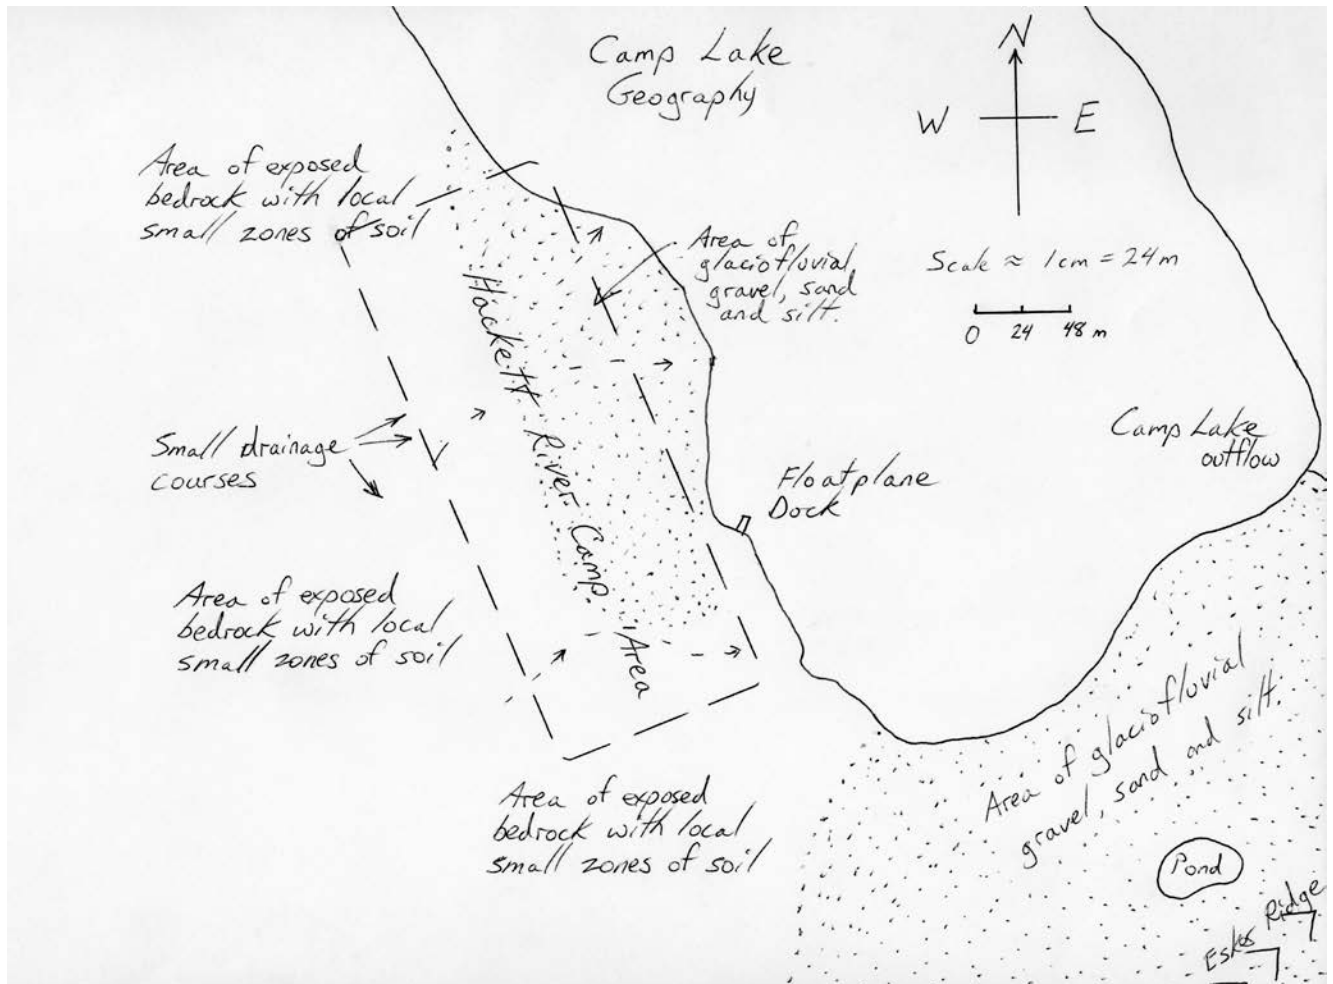 Camp Lake
Geography
N
W
E
Area of exposed
bedrock with local
small zones of soil
Area of
glaciofluvial
gravel, sand
and silt.
Scale ≈ 1cm = 24m
0 24 48 m
Hackett River Camp Area
Small drainage
courses
Floatplane
Dock
Camp Lake
outflow
Area of exposed
bedrock with local
small zones of soil
Area of glaciofluvial
gravel, sand and silt.
Area of exposed
bedrock with local
small zones of soil
Pond
Esker Ridge